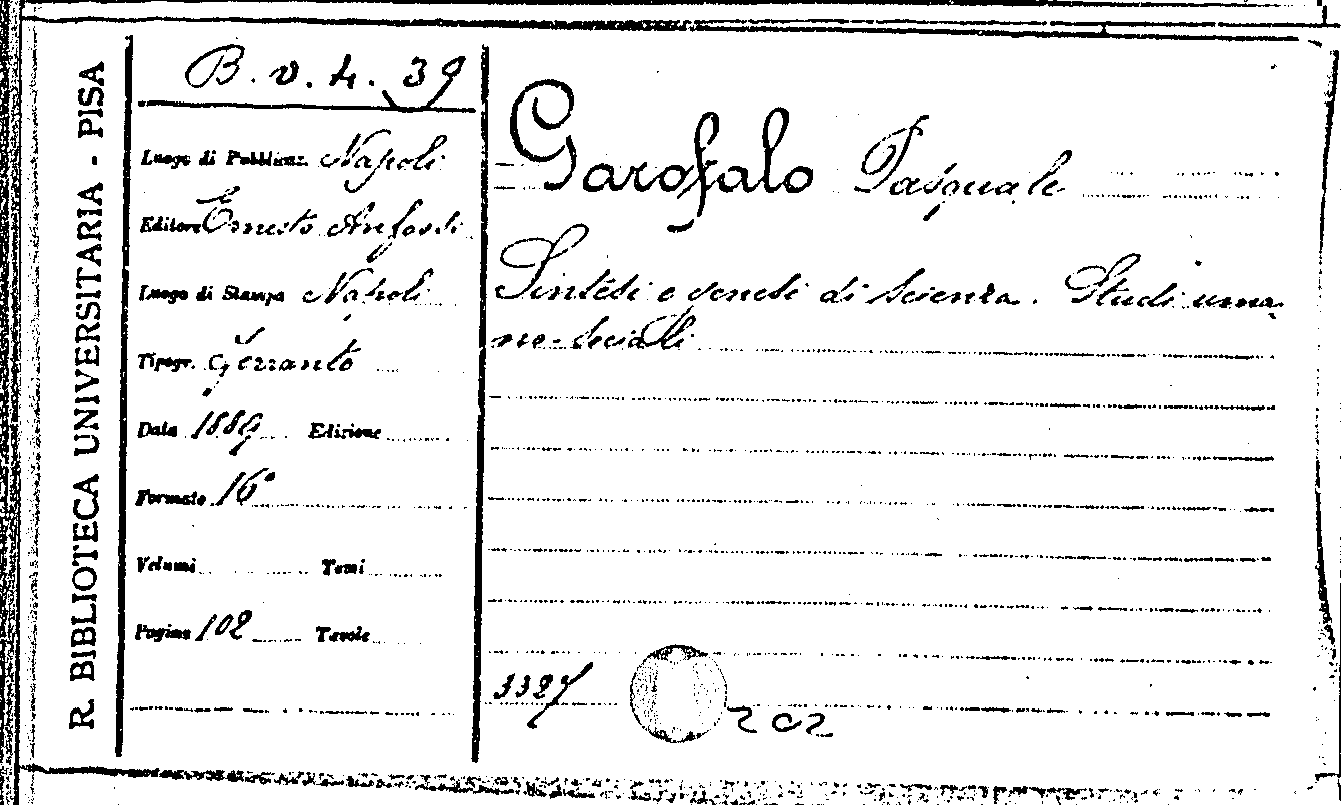 R. BIBLIOTECA UNIVERSITARIA - PISA
B. v. 4. 39
Luogo di Pubblicaz. Napoli
Editore Ernesto Anfossi
Luogo di Stampa Napoli
Tipogr. Ferrante
Data 1889 Edizione
Formato 16°
Volumi Tomi
Pagine 102 Tavole
Garofalo Pasquale
Sintesi e genesi di scienza. Studi uma-
no-sociali
202